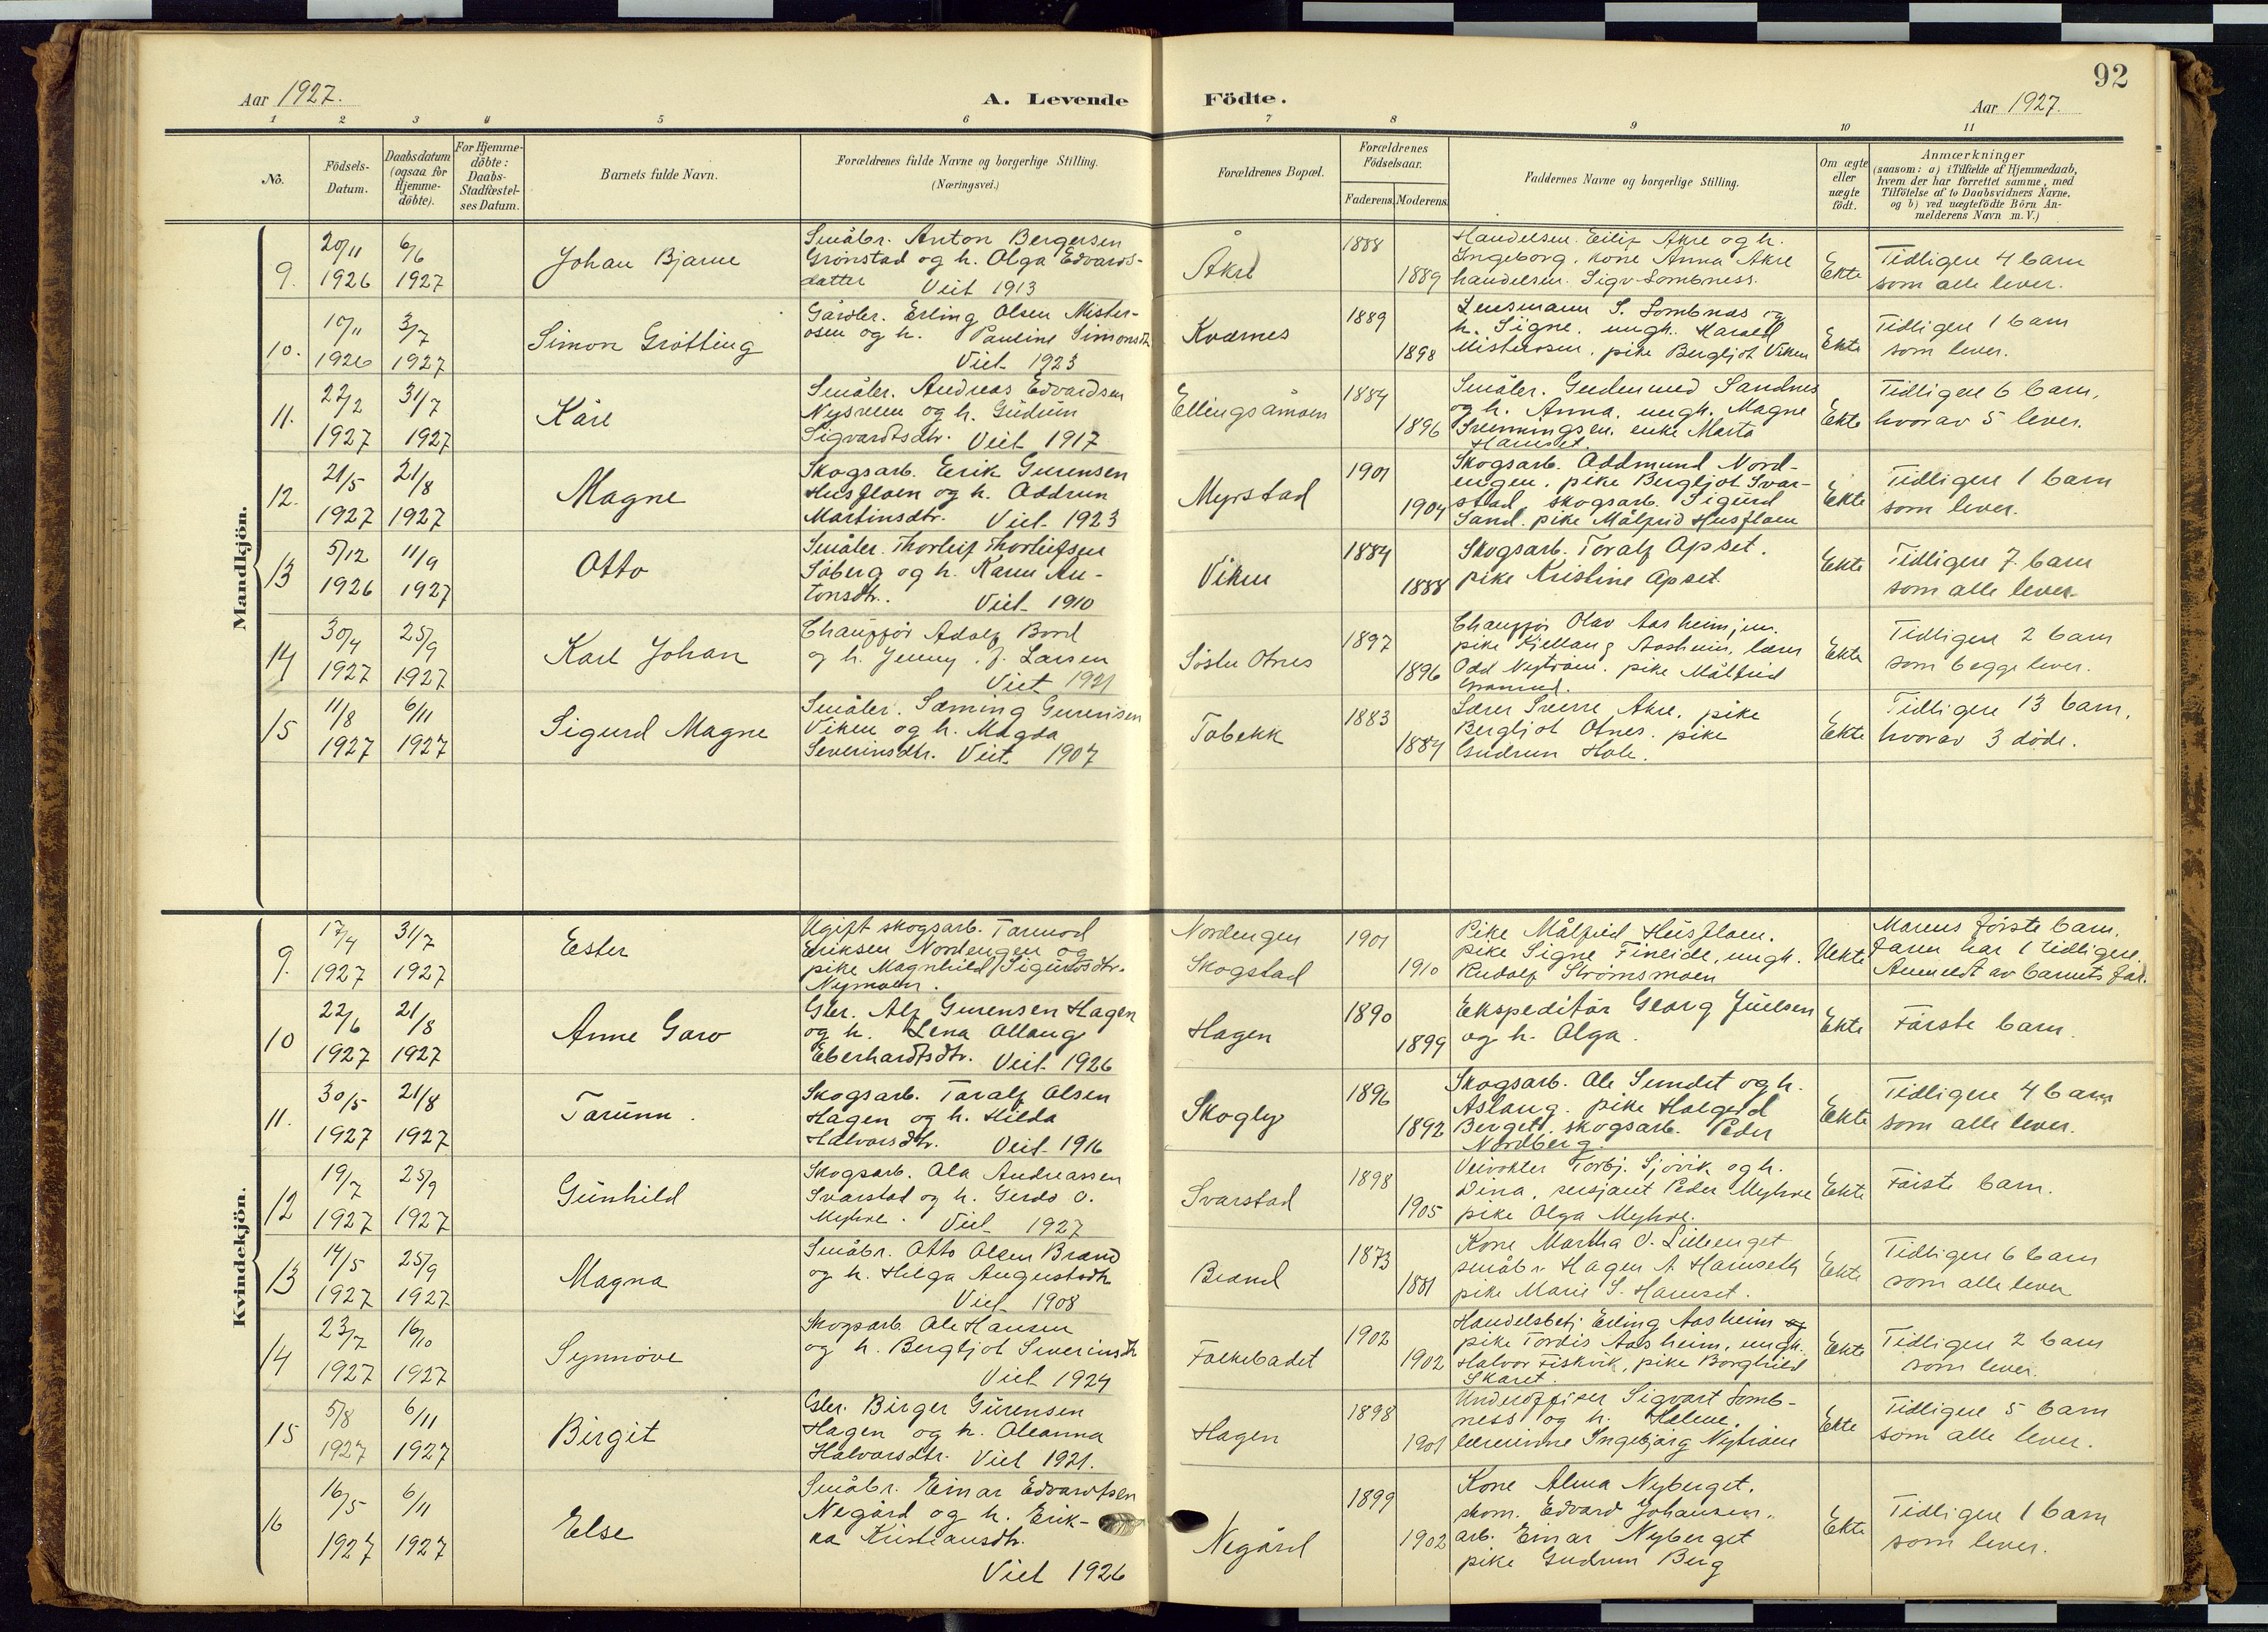 92
Aar 1927. A. Levende Födte. Aar 1927.
1 2 3 4 5 6 7 8 9 10 11
No.
Födsels-
Datum.
Daabsdatum
(ogsaa for
Hjemme-
döbte).
For Hjemme-
döbte:
Daabs-
Stadfæstel-
ses Datum.
Barnets fulde Navn.
Forældrenes fulde Navne og borgerlige Stilling.
(Næringsvei.)
Forældrenes Bopæl.
Forældrenes
Födselsaar.
Faderens. Moderens.
Faddernes Navne og borgerlige Stilling.
Om ægte
eller
uægte
födt.
Anmærkninger
(saasom: a) i Tilfælde af Hjemmedaab,
hvem der har forrettet samme, med
Tilföielse af to Daabsvidners Navne.
og b) ved uægtefödte Börn An-
melderens Navn m. V.)
Mandkjön.
9.
20/11
1926
6/6
1927
Johan Bjarne
Småbr. Anton Bergersen
Grönstad og h. Olga Edvards-
datter Viet 1913
Åkre
1888
1889
Handelsm. Eilif Akre og h.
Ingeborg, kone Anna Akre
handelsm. Sigv. Lombness.
Ekte
Tidligere 4 barn
som alle lever.
10.
17/11
1926
3/7
1927
Simon Grötting
Gårdbr. Erling Olsen Mister-
osen og h. Pauline Simonsdtr
Viet 1923
Kværnes
1889
1898
Lensmann S. Lombnæs og
h. Signe, ungk. Harald
Misterosen, pike Bergljot Viken
Ekte
Tidligere 1 barn
som lever.
11.
22/2
1927
31/7
1927
Kåre
Småbr. Andreas Edvardsen
Nysveen og h. Gudrun
Sigvardtsdtr. Viet 1917
Ellingsåmoen
1884
1896
Småbr. Gudmund Sandnes
og h. Anna, ungk. Magne
Svenningsen, enke Marta
Harnset.
Ekte
Tidligere 6 barn,
hvorav 5 lever.
12.
21/5
1927
21/8
1927
Magne
Skogsarb. Eerik Gurensen
Husfloen og h. Oddrun
Martinsdtr. Viet 1923
Myrstad
1901
1904
Skogsarb. Oddmund Nord-
engen, pike Bergljot Svar-
stad, skogsarb. Sigurd
Sand, pike Målfrid Husfloen
Ekte
Tidligere 1 barn
som lever.
13
5/12
1926
11/9
1927
Otto
Småbr. Thorleif Thorleifsen
Söberg og h. Karen An-
tonsdtr. Viet 1910
Viken
1884
1888
Skogsarb. Toralf Opset.
pike Kristine Opset.
Ekte
Tidligere 7 barn
som alle lever.
14
30/4
1927
25/9
1927
Karl Johan
Chaufför Adolf Bord
og h. Jenny, f. Larsen
Viet 1921
Söstu Otnes
1897
1896
Chaufför Olav Aasheim jun.
pike Kjellaug Aasheim, lærer
Odd Nytröen, pike Målfrid
Ekte
Tidligere 2 barn
som begge lever.
15
11/8
1927
6/11
1927
Sigurd Magne
Småbr. Sæming Gurensen
Viken og h. Magda
Severinsdtr. Viet 1907
Tobekk
1883
1884
Lærer Sverre Akre, pike
Bergljot Otnes, pike
Gudrun Hole.
Ekte
Tidligere 13 barn,
hvorav 3 döde.
Kvindekjön.
9.
17/4
1927
31/7
1927
Ester
Ugift skogsarb. Tormod
Eriksen Nordengen og
pike Magnhild Sigurdsdtr.
Nymoen.
Nordengen
Skogstad
1901
1910
Pike Målfrid Husfloen.
pike Signe Fineide, ungk.
Rudolf Strömsmoen
Uekte
Morens förste barn.
Faren har 1 tidligere.
Anmeldt av barnets far.
10
22/6
1927
21/8
1927
Anne Garo
Gbr. Alf Gurensen Hagen
og h. Lena Ollaug
Eberhardtsdtr. Viet 1926
Hagen
1890
1899
Ekspeditör Georg Juelsen
og h. Olga.
Ekte
Förste barn.
11.
30/5
1927
21/8
1927
Torunn.
Skogsarb. Toralf Olsen
Hagen og h. Hilda
Halvorsdtr. Viet 1916
Skogly
1896
1892
Skogsarb. Ole Sundet og h.
Aslaug, pike Holgerd
Berget, skogsarb. Peder
Nordberg.
Ekte
Tidligere 4 barn
som alle lever.
12
19/7
1927
25/9
1927
Gunhild
Skogsarb. Ola Andreassen
Svarstad og h. Gerda O.
Myhre. Viet 1927
Svarstad
1898
1905
Veivokter Torbj. Sjövik og h.
Dina, sersjant Peder Myhre
pike Olga Myhre.
Ekte
Förste barn.
13
14/5
1927
25/9
1927
Magna
Småbr. Otto Olsen Brand
og h. Helga Augustsdtr
Viet 1908
Brand
1873
1881
Kone Martha O. Lilleenget
småbr. Hagen A. Harnseth
pike Marie S. Harnset.
Ekte
Tidligere 6 barn
som alle lever
14
23/7
1927
16/10
1927
Synnöve
Skogsarb. Ole Hansen
og h. Bergljot Severinsdtr
Viet 1924
Folkebadet
1902
1902
Handelsbetj. Erling Aasheim og
pike Tordis Aasheim, ungk.
Halvor Fiskvik, pike Borghild
Skaret.
Ekte
Tidligere 2 barn
som lever.
15
5/8
1927
6/11
1927
Birgit
Gbr. Birger Gurensen
Hagen og h. Oleanna
Halvorsdtr. Viet 1921.
Hagen
1898
1901
Underoffiser Sigvart Lomb-
ness og h. Helene.
lærerinne Ingebjörg Nytröen
Ekte
Tidligere 5 barn
som alle lever.
16
16/5
1927
6/11
1927
Else
Småbr. Einar Edvardsen
Negård og h. Erik-
ka Kristiansdtr.
Viet 1926
Negård
1899
1902
Kone Alma Nyberget.
skom. Edvard Johansen.
arb. Einar Nyberget
pike Gudrun Berg
Ekte
Tidligere 1 barn
som lever.